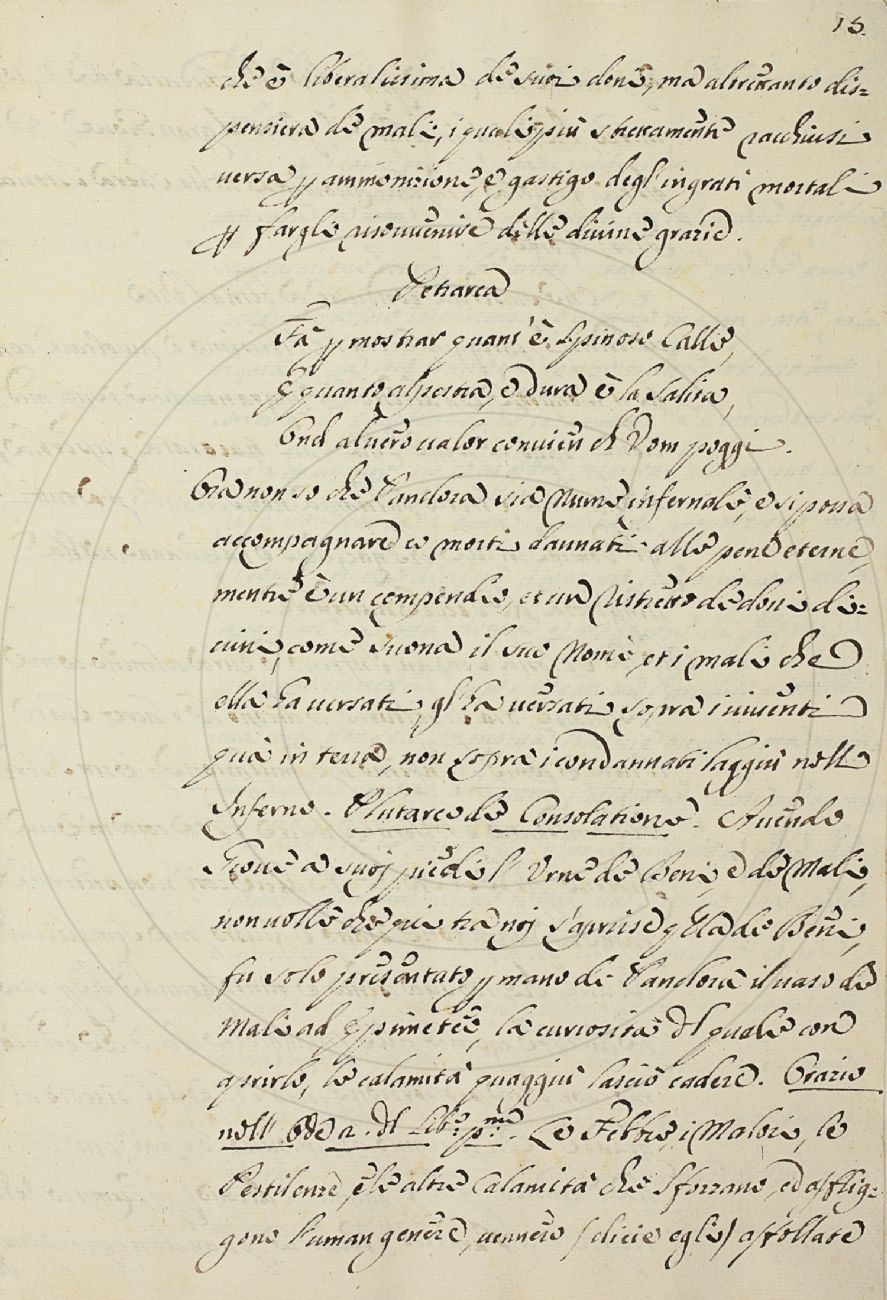 15.
che è liberalissima de suoi doni, mà altretanto dis=
pensiera de mali, i quali più strettamente racchiusi
versa p ammonizione, e gastigo degl'ingrati mortali
p fargli risouuenire delle diuine grazie.
Petrarca
Fà p mostrar quant'è spinoso Calle,
E quanto alpestra, e dura è la Salita,
Ond al uero ualor conuien ch Uom poggi.
Ora non so che Pandora sia Nume infernale, e si possa
accompagnare co morti dannati alle pene eterne,
mentre è un compendio, et un Ristretto de doni di=
uini, come suona il suo Nome, et i mali che
ella ha uersati, gl'ha uersati sopra i uiuenti
quà in terra, non sopra i condannati laggiù nell
Inferno. Plutarco de Consolatione. Auendo
Gioue a suoj piedi l'Urne de Beni, e de Mali,
non uolle che quì tra noj s'aprisse qlla de Beni,
fù solo presentato p mano di Pandora il uaso de
Mali ad Epimeteo, la curiosità dl quale con
aprirlo, le calamità quaggiù lasciò cadere. Orazio
nell' Ode 2. dl Lib.o p.mo. Le Febbri, i Malori, le
Pestilenze, e le altre Calamità che sforzano, ed afflig=
gono l'uman genere, uennero (dicie egli) affollate